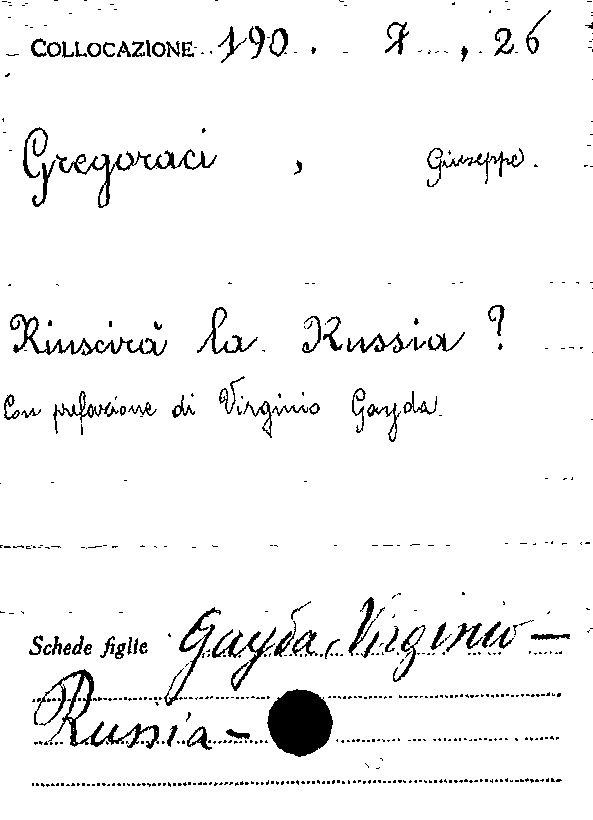 COLLOCAZIONE 190. 7, 26
Gregoraci, Giuseppe.
Riuscirà la Russia?
Con prefazione di Virginio Gayda.
Schede figlie Gayda, Virginio —
Russia -